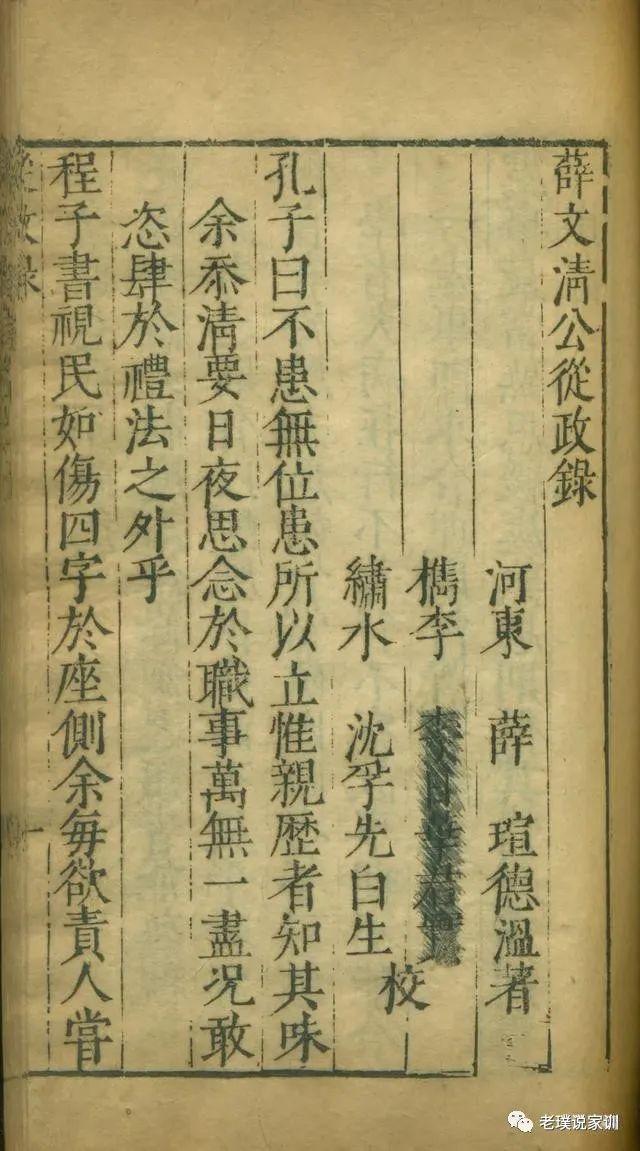 薛文清公從政錄
河東 薛 瑄德溫著
檇李 李日華君實
繡水 沈孚先白生
校
孔子曰不患無位患所以立惟親歴者知其味
余忝清要日夜思念於職事萬無一盡况敢
恣肆於禮法之外乎
程子書視民如傷四字於座側余每欲責人嘗
從政錄 一
老璞说家训